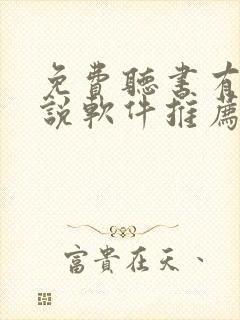 免費聽書有
說軟件推薦
富貴在天、